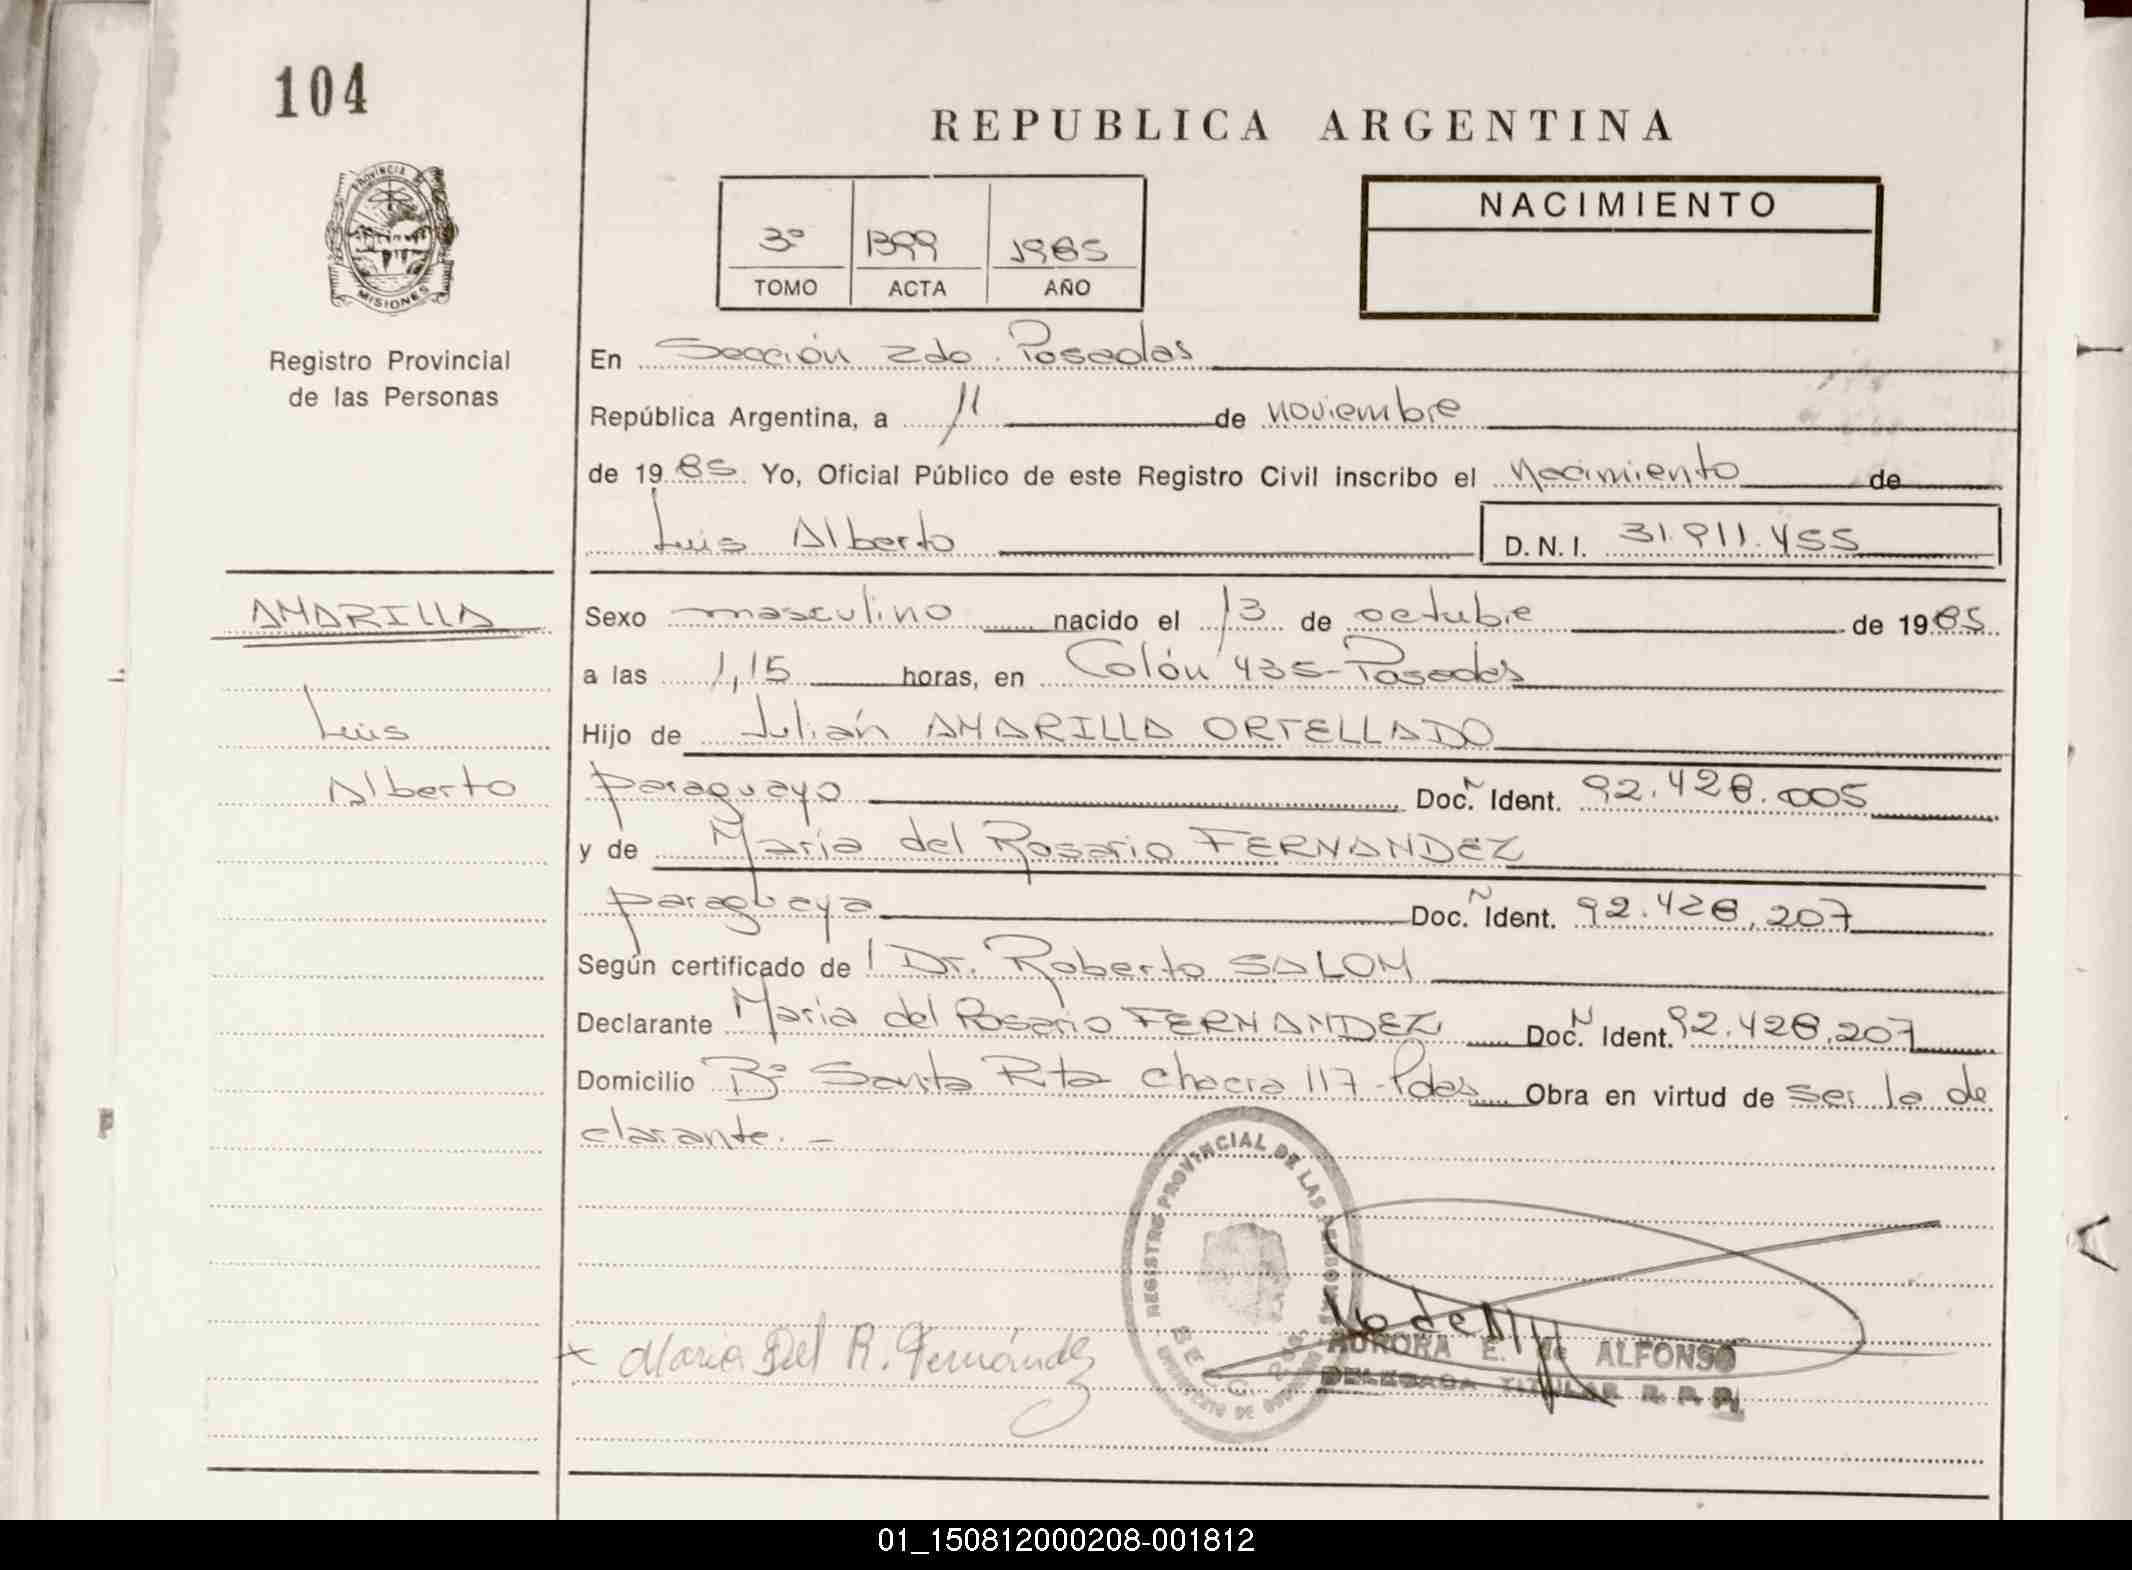 104
REPUBLICA ARGENTINA
PROVINCIA DE
MISIONES
Registro Provincial
de las Personas
3º 1399 1985
TOMO ACTA AÑO
NACIMIENTO
En Sección 2da. Posadas
República Argentina, a 11 de noviembre
de 1985 Yo, Oficial Público de este Registro Civil inscribo el Nacimiento de
Luis Alberto D.N.I. 31.911.455
AMARILLA
Luis
Alberto
Sexo masculino nacido el 13 de octubre de 1985
a las 1,15 horas, en Colón 435-Posadas
Hijo de Julián AMARILLA ORTELLADO
paraguayo Doc. N Ident. 92.428.005
y de María del Rosario FERNANDEZ
paraguaya Doc. N Ident. 92.428.207
Según certificado de Dr. Roberto SALOM
Declarante María del Rosario FERNANDEZ Doc. N Ident. 92.428.207
Domicilio Bº Santa Rta chacra 117-Pdas Obra en virtud de ser la de
clarante.-
REGISTRO PROVINCIAL DE LAS PERSONAS
Maria Del R. Fernández
AURORA E. de ALFONSO
DELEGADA TITULAR R. P. P.
01_150812000208-001812